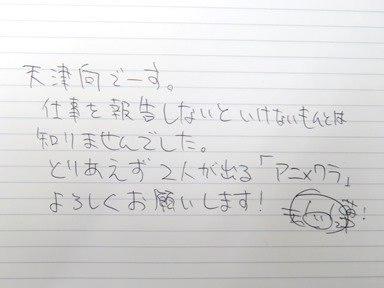 天津向でーす。
仕事を報告しないといけないもんとは
知りませんでした。
とりあえず2人が出る「アニメクラ」
よろしくお願いします!